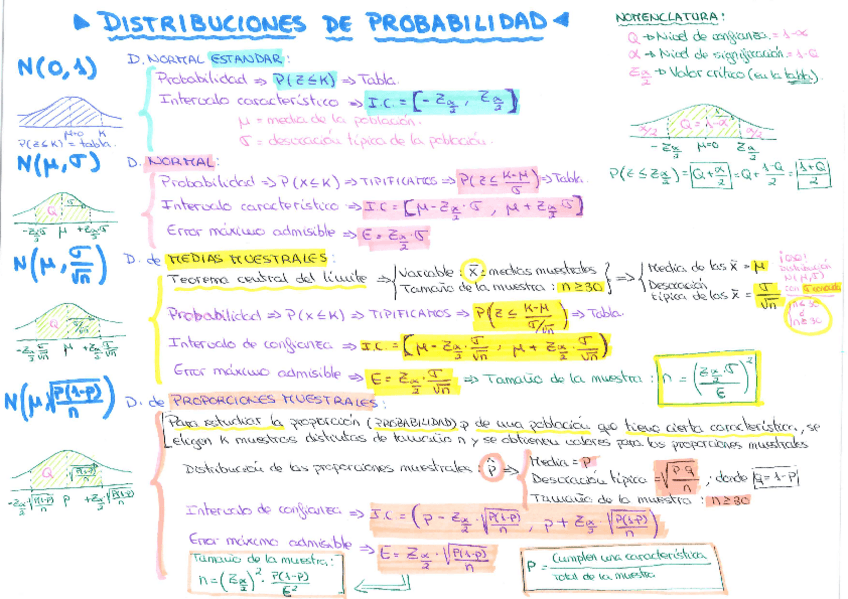 ▶ DISTRIBUCIONES DE PROBABILIDAD ◀
NOMENCLATURA:
Q → Nivel de confianza = 1-α
α → Nivel de significación = 1-Q
Zα/2 → Valor crítico (en la tabla).
N(0,1)
D. NORMAL ESTANDAR:
Probabilidad ⇒ P(Z≤K) ⇒ Tabla.
Intervalo característico ⇒ I.C. = [-Zα/2, Zα/2]
μ = media de la población.
σ = desviación típica de la población.
μ=0 K
P(Z≤K) = tabla.
α/2 Q = 1-α α/2
-Zα/2 μ=0 Zα/2
P(Z≤Zα/2) = Q+α/2 = Q+1-Q/2 = 1+Q/2
N(μ,σ)
D. NORMAL:
Probabilidad ⇒ P(x≤K) ⇒ TIPIFICAMOS ⇒ P(Z≤K-μ/σ) ⇒ Tabla.
Intervalo característico ⇒ I.C = [μ-Zα/2·σ, μ+Zα/2·σ]
Error máximo admisible ⇒ E = Zα/2·σ
Q σ
-Zα/2·σ μ +Zα/2·σ
N(μ, σ/√n)
D. de MEDIAS MUESTRALES:
Teorema central del límite ⇒ Variable: x̄: medias muestrales
Tamaño de la muestra: n≥30
⇒ Media de las x̄ = μ
Desviación típica de las x̄ = σ/√n
¡OJO!
Distribución
N(μ,σ)
con σ conocida
n≤30
n≥30
Probabilidad ⇒ P(x≤K) ⇒ TIPIFICAMOS ⇒ P(Z≤K-μ/σ/√n) ⇒ Tabla.
Intervalo de confianza ⇒ I.C. = [μ-Zα/2·σ/√n, μ+Zα/2·σ/√n]
Error máximo admisible ⇒ E = Zα/2·σ/√n ⇒ Tamaño de la muestra: n = (Zα/2·σ/E)²
Q σ/√n
-Zα/2·σ/√n μ +Zα/2·σ/√n
N(μ,√P(1-P)/n)
D. de PROPORCIONES MUESTRALES:
Para estudiar la proporción (PROBABILIDAD) p de una población que tiene cierta característica, se
eligen K muestras distintas de tamaño n y se obtienen valores para las proporciones muestrales
Distribución de las proporciones muestrales: p̂ ⇒ Media = P
Desviación típica = √P·Q/n, donde Q=1-P
Tamaño de la muestra: n≥30
Q √P(1-P)/n
-Zα/2·√P(1-P)/n P +Zα/2·√P(1-P)/n
Intervalo de confianza ⇒ I.C. = (P-Zα/2·√P(1-P)/n, P+Zα/2·√P(1-P)/n)
Error máximo admisible ⇒ E = Zα/2·√P(1-P)/n
Tamaño de la muestra:
n = (Zα/2)²·P(1-P)/E²
P = Cumplen una característica / Total de la muestra